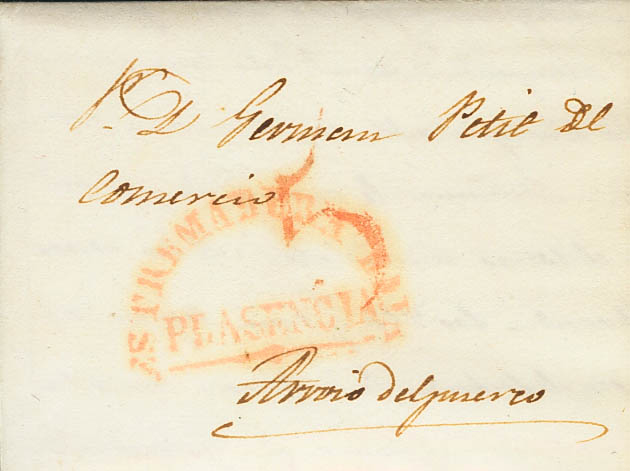 Sr. D. German Petit Del
Comercio
ESTREMADURA BAJA
PLASENCIA
Arroio del puerco